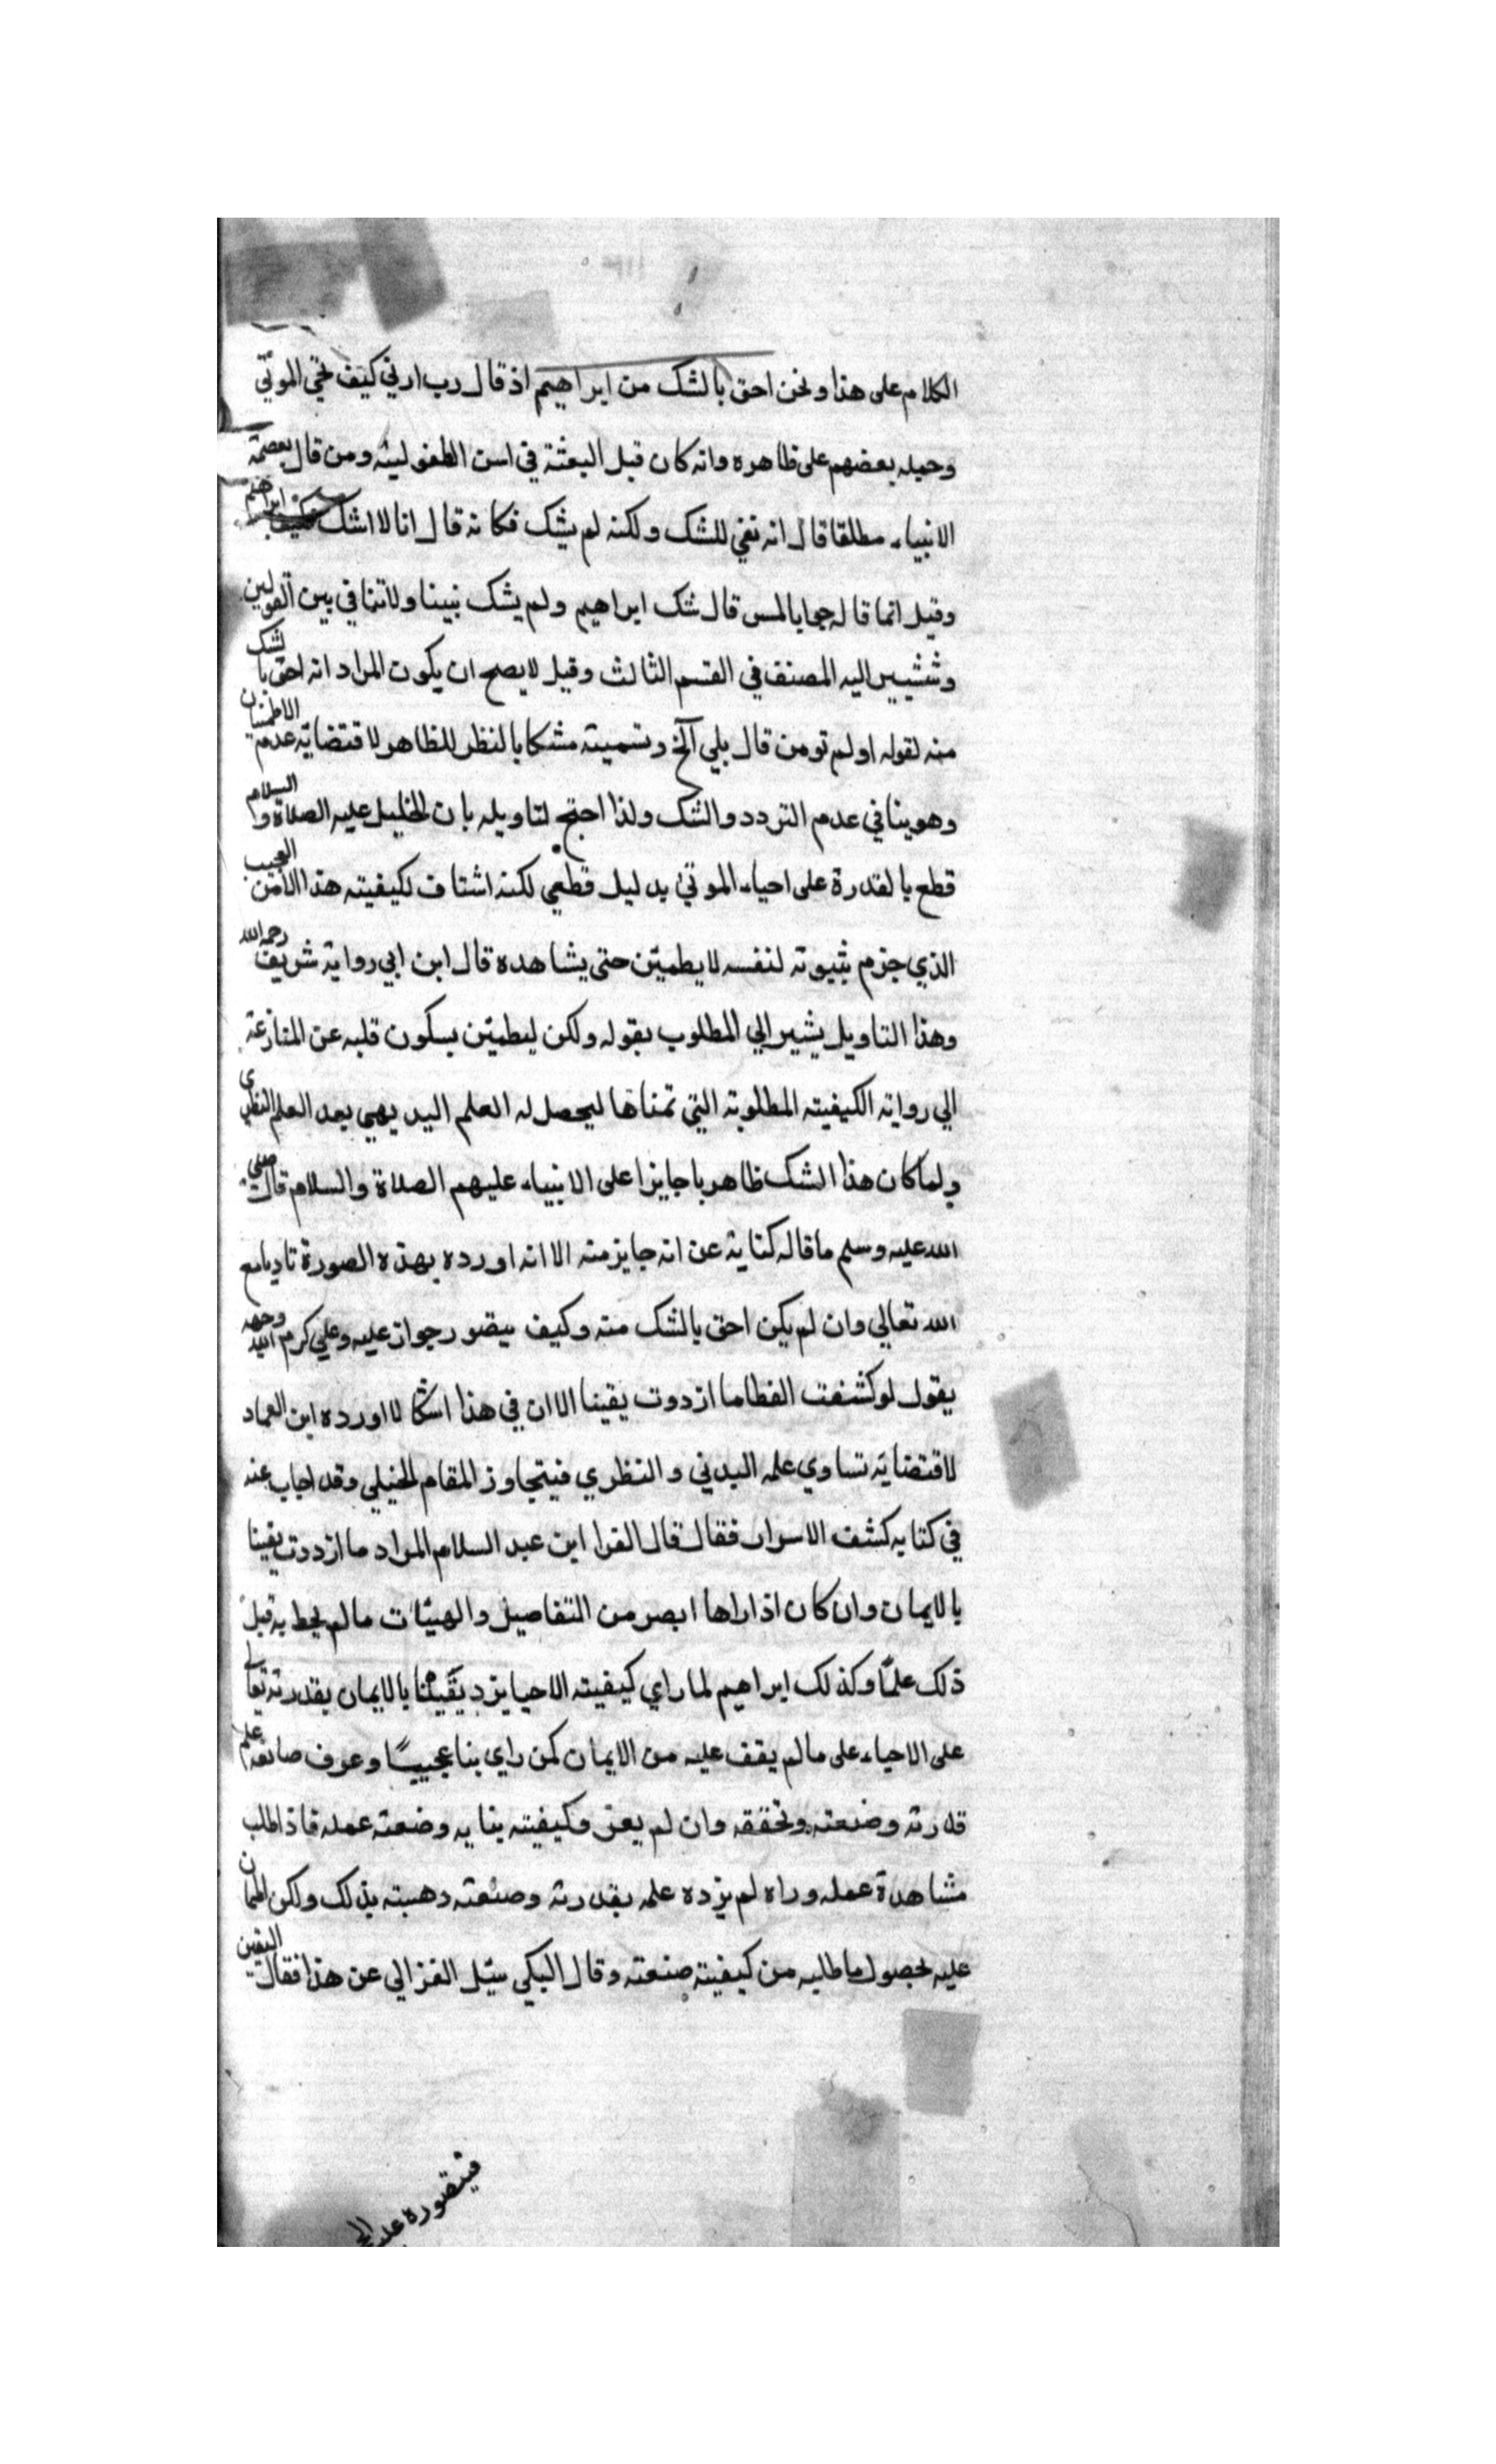 الكلام على هذا ونحن احق بالشك من ابراهيم اذ قال رب ارني كيف تحي الموتي
وحمله بعضهم على ظاهره وانه كان قبل البعثة في اسن الطفوليته ومن قال بعصمة
الانبياء مطلقا قال انه نفي للشك ولكنه لم يشك فكانه قال انا لا اشك ابراهيم
وقيل انما قاله جوابا لمس قال شك ابراهيم ولم يشك نبينا ولا تنافي بين القولين
وشيسير اليه المصنف في القسم الثالث وقيل لا يصح ان يكون المراد انه احق بالشك
منه لقوله اولم تومن قال بلي الخ وتسميته مشكا بالنظر للظاهر لاقتضايه عدم الاطمنان
وهو ينافي عدم التردد والشك ولذا احتج لتاويله بان الخليل عليه الصلاة والسلام
قطع بالقدرة على احياء الموتي بدليل قطعي لكنه اشتاق لكيفيته هذا الامر العجيب
الذي جزم بثبوته لنفسه لا يطمئن حتى يشاهده قال ابن ابي رواية شريف رحمه الله
وهذا التاويل يشير الي المطلوب بقوله ولكن ليطمئن بسكون قلبه عن المنازعة
الي روايته الكيفيته المطلوبته التي تمناها ليحصل له العلم البديهي بعد العلم النظري
ولما كان هذا الشك ظاهريا جايزا على الانبياء عليهم الصلاة والسلام قال صلي
الله عليه وسلم ما قاله كناية عن انه جايز منه الا انه اورده بهذه الصورة تادبا مع
الله تعالي وان لم يكن احق بالشك منه وكيف يتصور جوازه عليه وعلي كرم الله وجهه
يقول لو كشفت الغطا ما ازددت يقينا الا ان في هذا اشكالا اورده ابن العماد
لاقتضايه تساوي علمه البدني والنظري فيتجاوز المقام الخليلي وقد اجاب عنه
في كتابه كشف الاسرار فقال قال الغزا ابن عبد السلام المراد ما ازددت يقينا
بالايمان وان كان اذا راها ابصر من التفاصيل والهيئات ما لم يحط به قبل
ذلك علمًا وكذلك ابراهيم لما راي كيفيته الاحيا يزد يقينا بالايمان بقدرته تعالي
على الاحياء على ما لم يقف عليه من الايمان كمن راي بنا عجيبًا وعرف صانعه علم
قدرته وضعته وتحققه وان لم يعرف كيفيته بنايه وضعته عمله فاذا طلب
مشاهدة عمله وراه لم يزده علمه بقدرته وصنعته دهسته بذلك ولكن اطمان
عليه لحصول ما طلبه من كيفيته صنعته وقال البكي سيل الغزالي عن هذا فقال اليقين
فيتصوره عليه